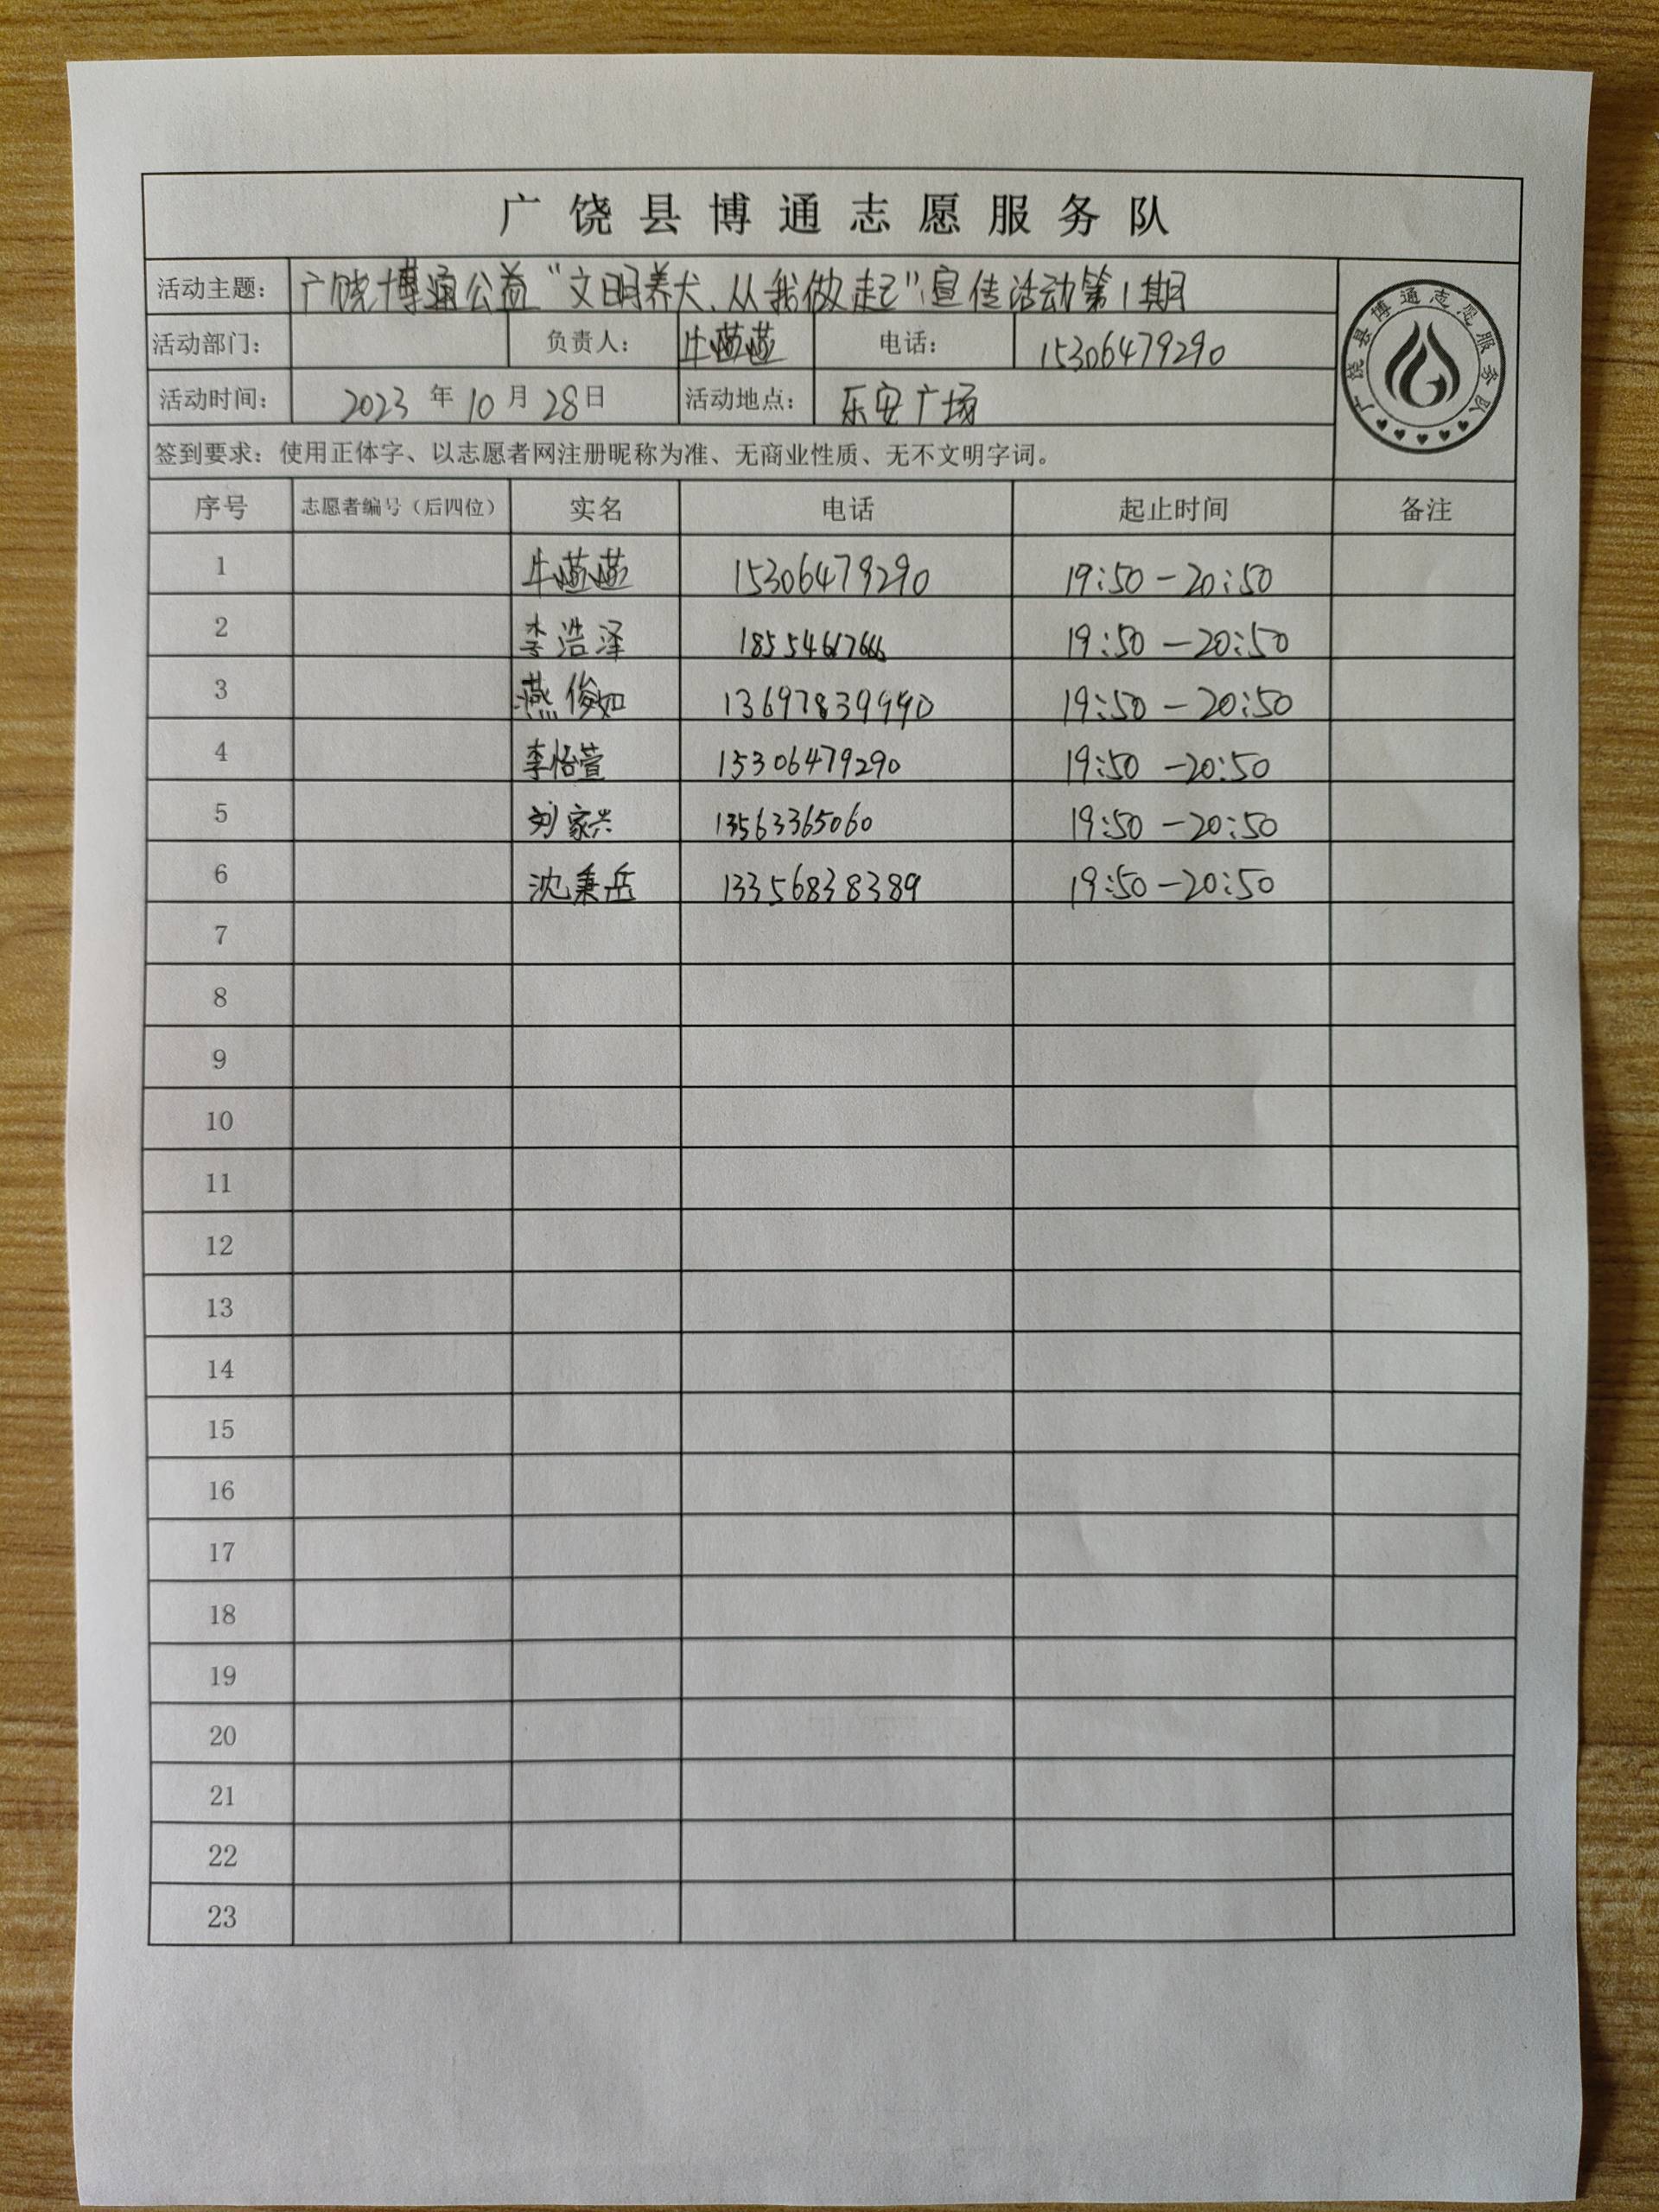 广饶县博通志愿服务队
活动主题： 广饶博通公益“文明养犬、从我做起”宣传活动第1期
广饶县博通志愿服务队
活动部门： 负责人： 牛燕燕 电话： 15306479290
活动时间： 2023年10月28日 活动地点： 乐安广场
签到要求：使用正体字、以志愿者网注册昵称为准、无商业性质、无不文明字词。
序号 志愿者编号（后四位） 实名 电话 起止时间 备注
1 牛燕燕 15306479290 19:50-20:50
2 李浩泽 19:50-20:50
3 燕俊如 13697839990 19:50-20:50
4 李怡萱 15306479290 19:50-20:50
5 刘家兴 13563365060 19:50-20:50
6 沈秉岳 13356838389 19:50-20:50
7
8
9
10
11
12
13
14
15
16
17
18
19
20
21
22
23